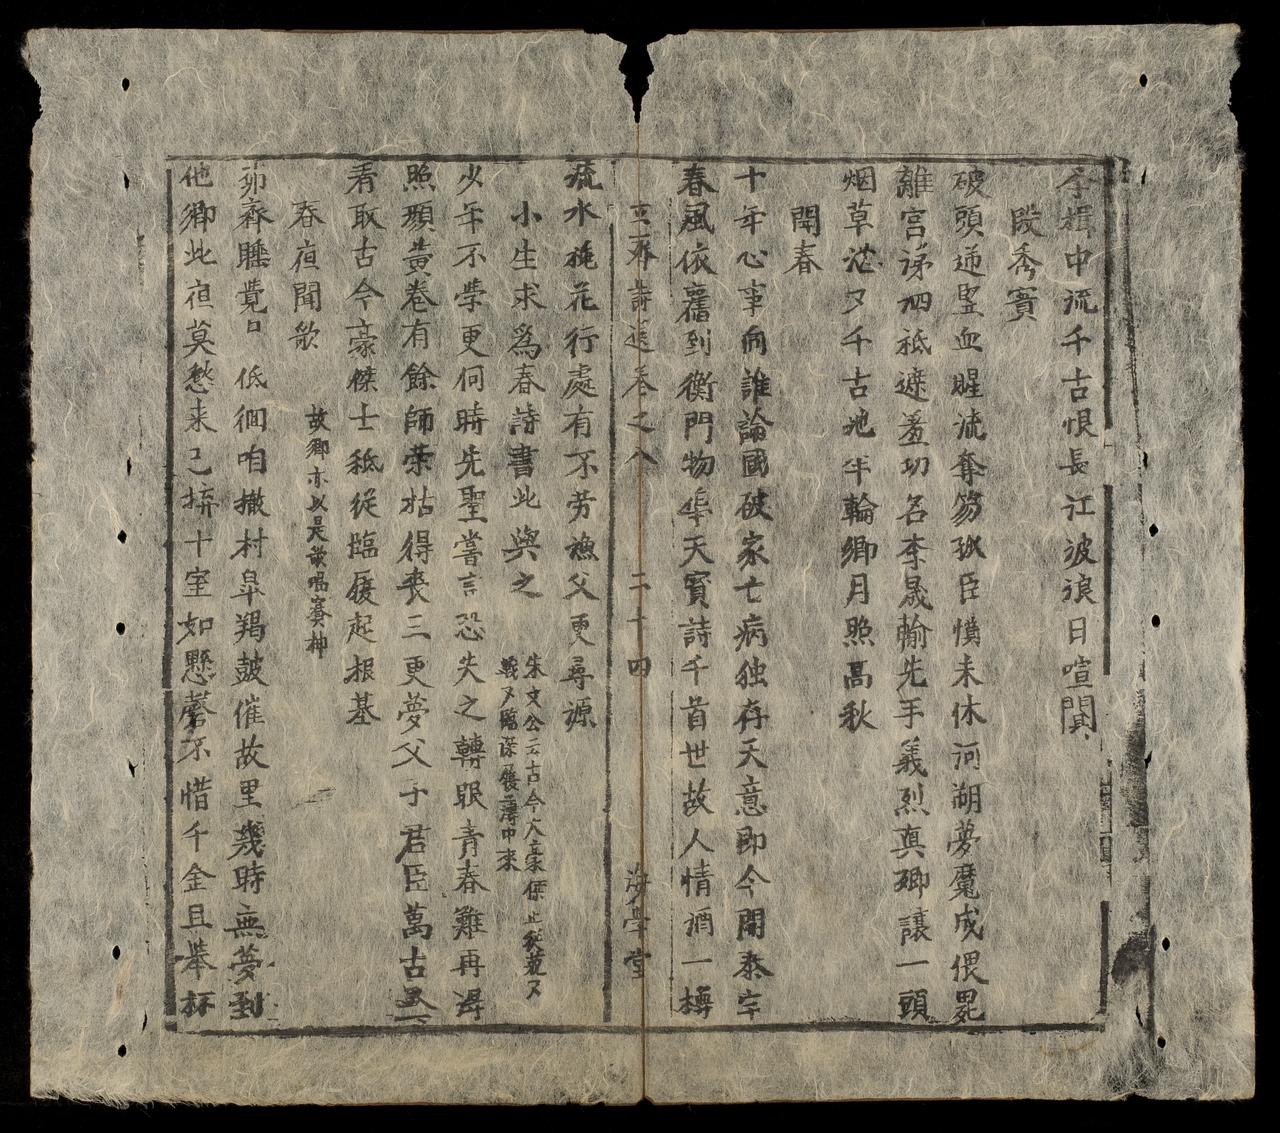 中流千古恨長江波浪日喧闐
段秀實
破頭逆豎血腥流奪笏孤臣憤未休河湖夢魔成偎罷
離宮涕泗秪遮羞功名李晟輸先手義烈真卿讓一頭
烟草茫〻千古地半輪鄉月照高秋
開春
十年心事向誰論國破家亡病独存天意即今開泰宇
春風依舊到衡門物華天寶詩千首世故人情酒一樽
立齋詩選卷之八 二十四 海學堂
流水桃花行處有不劳漁父更尋源
小生求為春詩書此與之
朱文公云古今大豪傑
少年不學更何時先聖嘗言恐失之轉眼青春難再得
照頭黃卷有餘師榮枯得喪三更夢父子君臣萬古
看取古今豪傑士秪從臨履起根基
春夜聞歌
故鄉亦以是歌唱賽神
茆齋睡覺 低徊咱撤村皐羯鼓催故里幾時無夢到
他鄉此夜莫愁来已拚十室如懸磬不惜千金且舉杯